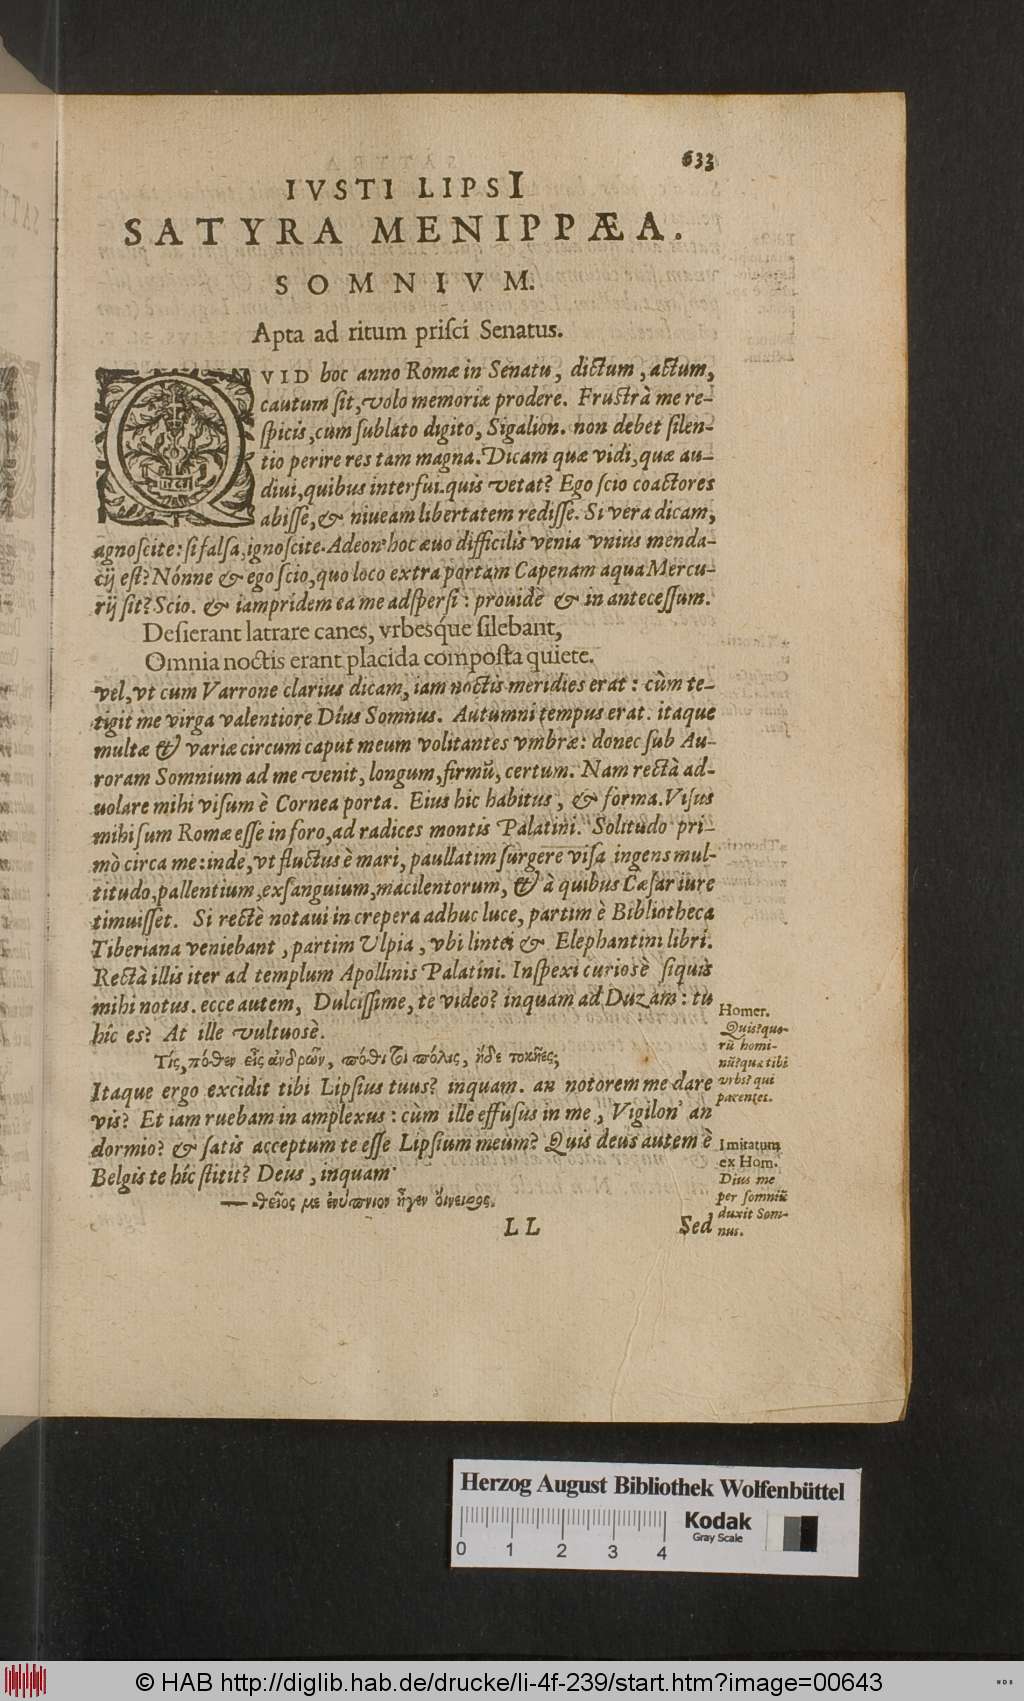 633
IVSTI LIPSI
SATYRA MENIPPÆA.
SOMNIVM.
Apta ad ritum priſci Senatus.
QVID hoc anno Romæ in Senatu, dictum, actum,
cautum ſit, volo memoriæ prodere. Fruſtrà me re-
ſpicis, cum ſublato digito, Sigalion. non debet ſilen-
tio perire res tam magna. Dicam quæ vidi, quæ au-
diui, quibus interfui. quis vetat? Ego ſcio coactores
abiſſe, & niueam libertatem rediſſe. Si vera dicam,
agnoſcite: ſi falſa, ignoſcite. Adeon' hoc æuo difficilis venia vnius menda-
cij eſt? Nónne & ego ſcio, quo loco extra portam Capenam aqua Mercu-
rij ſit? Scio. & iampridem ea me adſperſi: prouidè & in anteceſſum.
Deſierant latrare canes, vrbesq́ue ſilebant,
Omnia noctis erant placida compoſta quiete.
vel, vt cum Varrone clarius dicam, iam noctis meridies erat: cùm te-
tigit me virga valentiore Dîus Somnus. Autumni tempus erat. itaque
multæ & variæ circum caput meum volitantes vmbræ: donec ſub Au-
roram Somnium ad me venit, longum, firmũ, certum. Nam rectà ad-
uolare mihi viſum è Cornea porta. Eius hic habitus, & forma. Viſus
mihi ſum Romæ eſſe in foro, ad radices montis Palatini. Solitudo pri-
mò circa me: inde, vt fluctus è mari, paullatim ſurgere viſa ingens mul-
titudo, pallentium, exſanguium, macilentorum, & à quibus Cæſar iure
timuiſſet. Si rectè notaui in crepera adhuc luce, partim è Bibliotheca
Tiberiana veniebant, partim Ulpia, vbi lintei & Elephantini libri.
Rectà illis iter ad templum Apollinis Palatini. Inſpexi curiosè ſiquis
mihi notus. ecce autem, Dulciſſime, te video? inquam ad Duzam: tu
hîc es? At ille vultuosè.
Τίς, πόθεν εἶς ἀνδρῶν, πόθι τοι πόλις, ἠδὲ τοκῆες;
Itaque ergo excidit tibi Lipſius tuus? inquam. an notorem me dare
vis? Et iam ruebam in amplexus: cùm ille effuſus in me, Vigilon' an
dormio? & ſatis acceptum te eſſe Lipſium meum? Quis deus autem è
Belgis te hîc ſtitit? Deus, inquam
— θεῖος με ἐνύπνιον ἦγεν ὄνειρος.
LL
Sed
Homer.
Quis? quo-
rũ homi-
nũ? qua tibi
vrbs? qui
parentes.
Imitatum
ex Hom.
Dius me
per ſomniũ
duxit Som-
nus.
Herzog August Bibliothek Wolfenbüttel
Kodak
Gray Scale
0 1 2 3 4
© HAB http://diglib.hab.de/drucke/li-4f-239/start.htm?image=00643